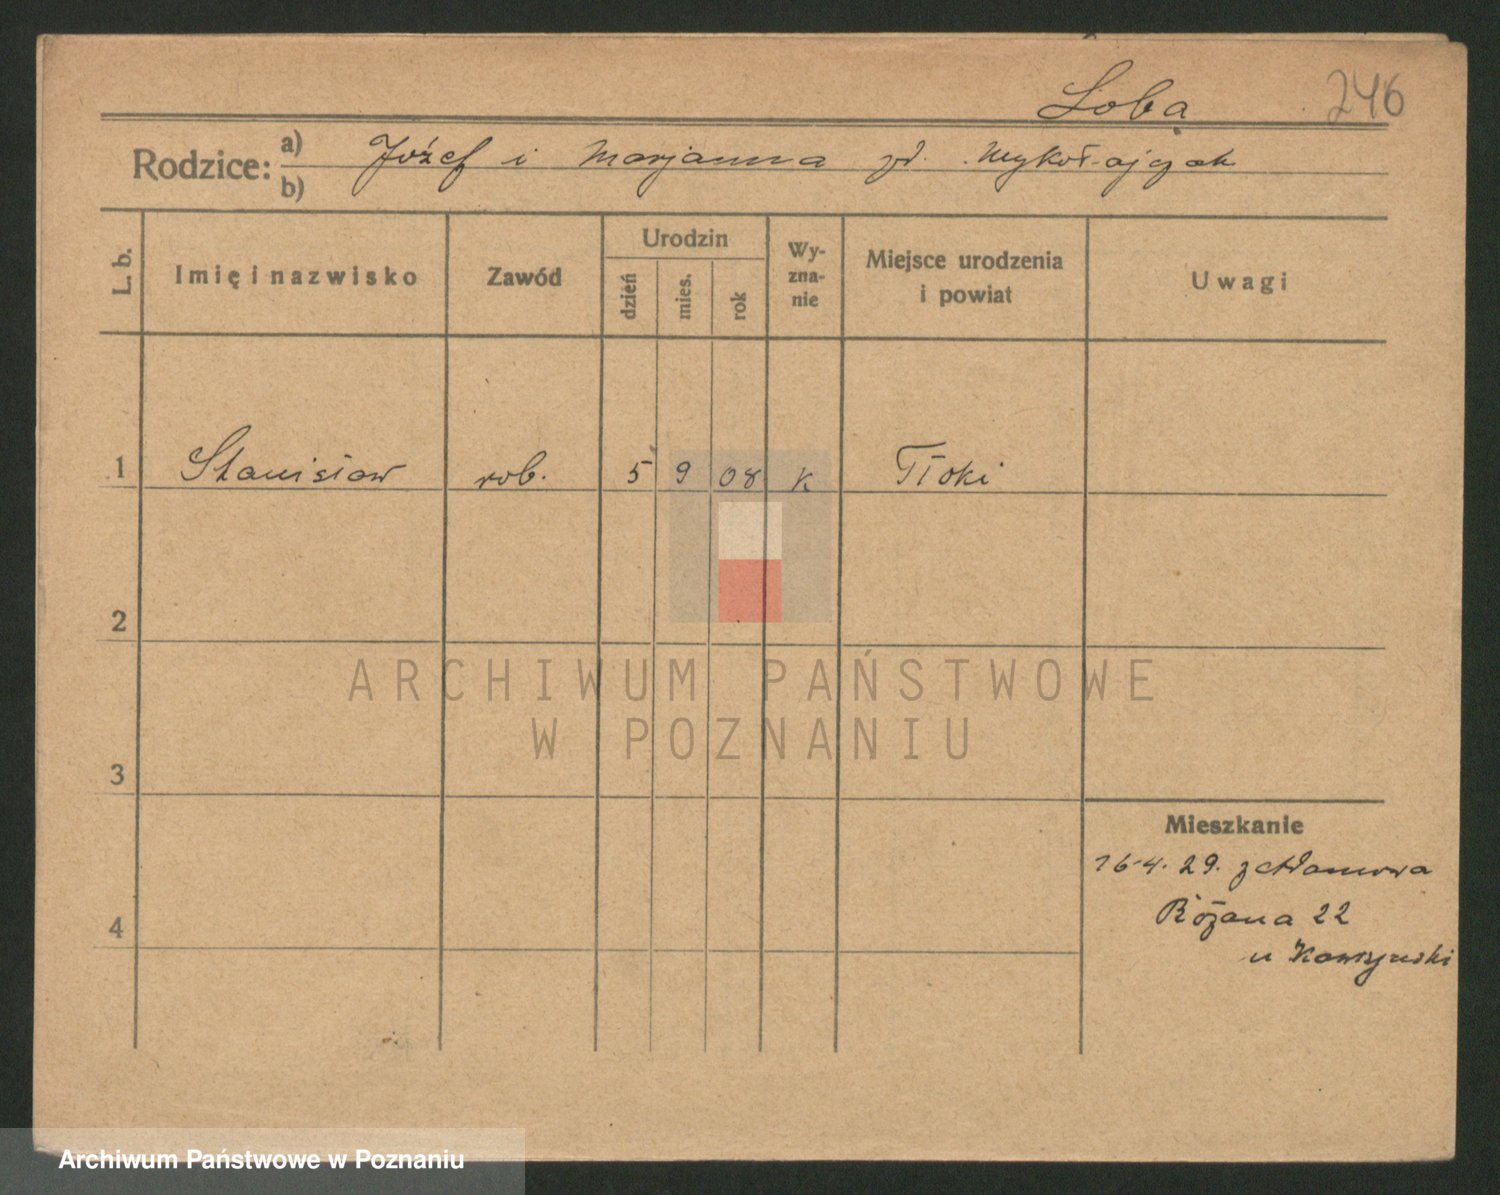 Loba 246
Rodzice: a) Józef i Marjanna zd. Mykołajczak
b)
L. b. Imię i nazwisko Zawód Urodzin dzień mies. rok Wy-zna-nie Miejsce urodzenia i powiat Uwagi
1 Stanisław rob. 5 9 08 K Tłoki
2
ARCHIWUM PAŃSTWOWE
W POZNANIU
3
Mieszkanie
16.4.29. z
Różana 22
4
u
Archiwum Państwowe w Poznaniu